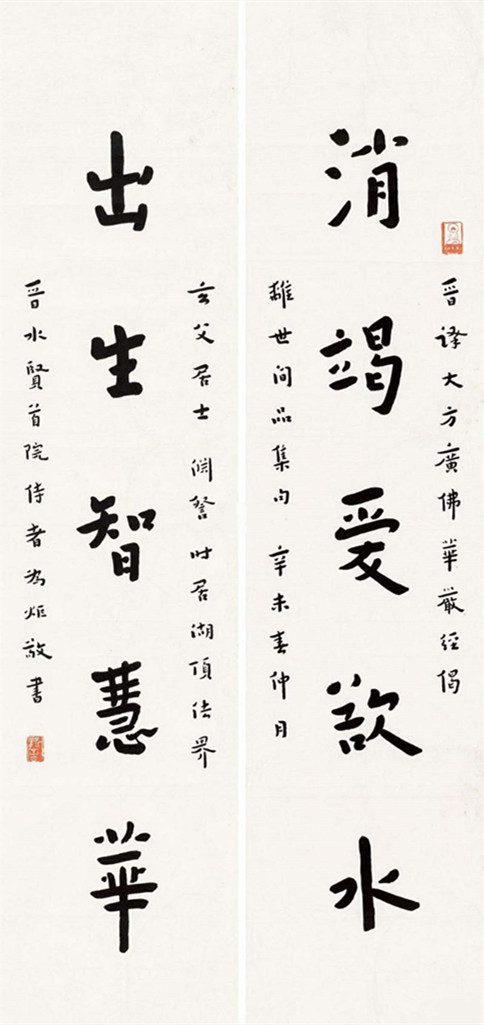 晉譯大方廣佛華嚴經偈
消竭愛欲水
離世間品集句 辛未春仲月
玄父居士 淵詧 时居湖頂法界
出生智慧華
晉水賢首院侍者為炬敬書